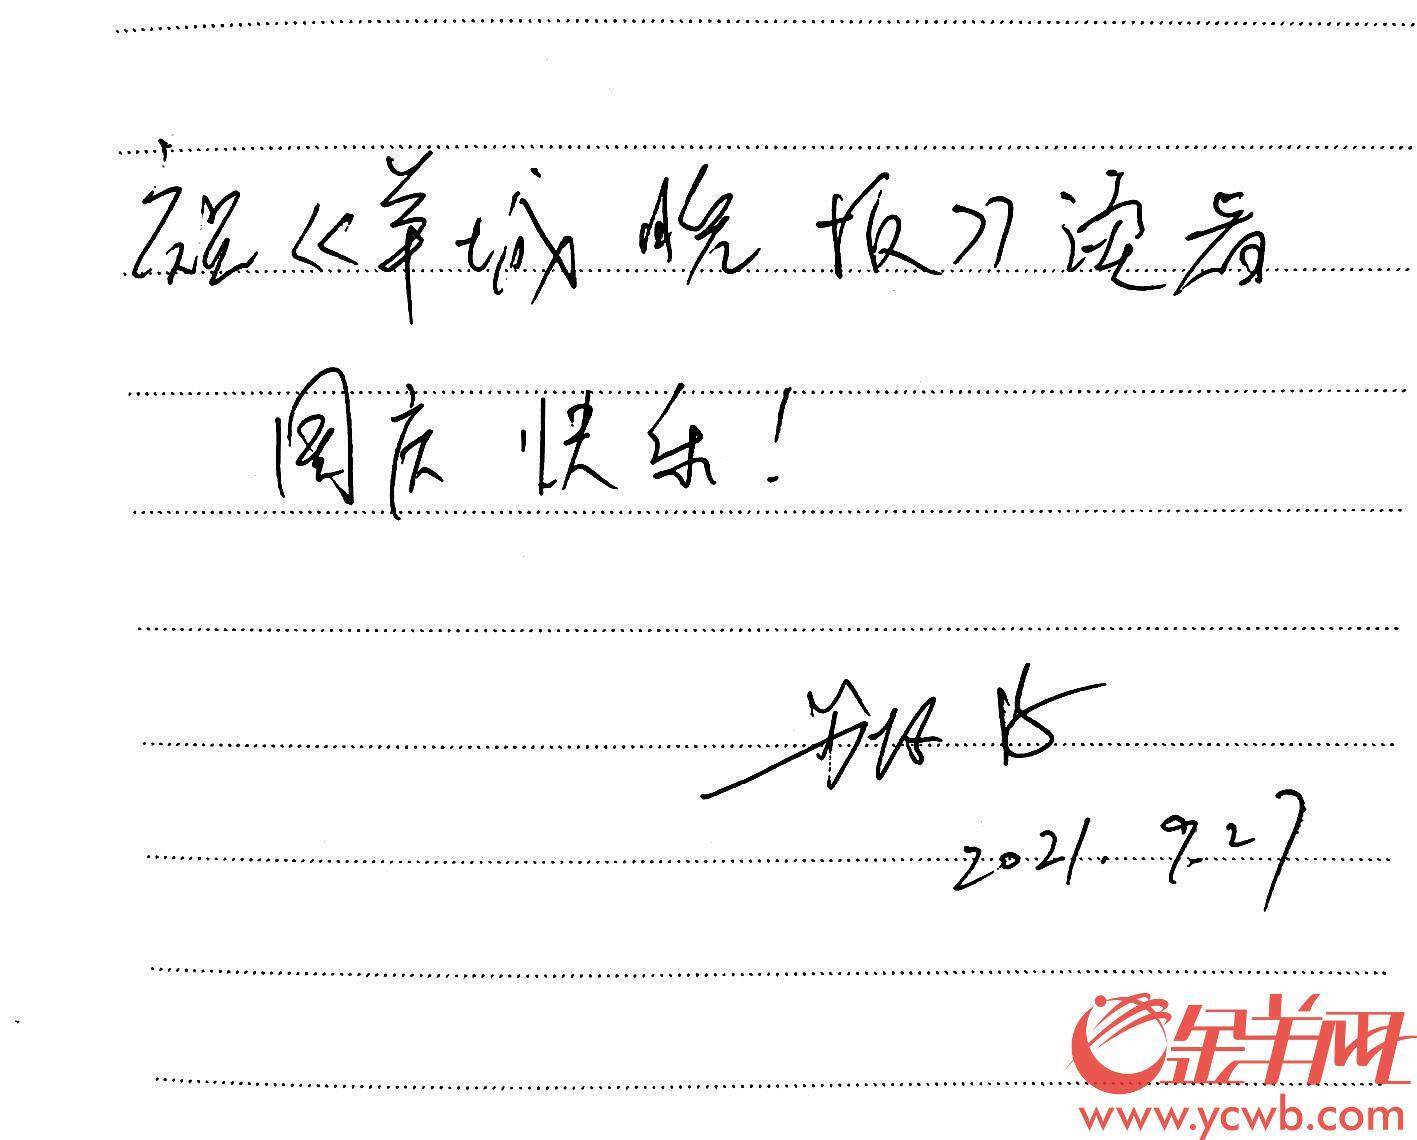 祝《羊城晚报》读者
国庆快乐!
2021.9.27
金羊网
www.ycwb.com